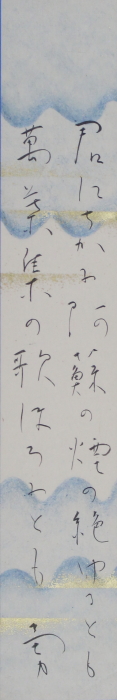 君にちかふ阿蘇の煙の絶ゆるとも
萬葉集の歌ほろふとも 勇